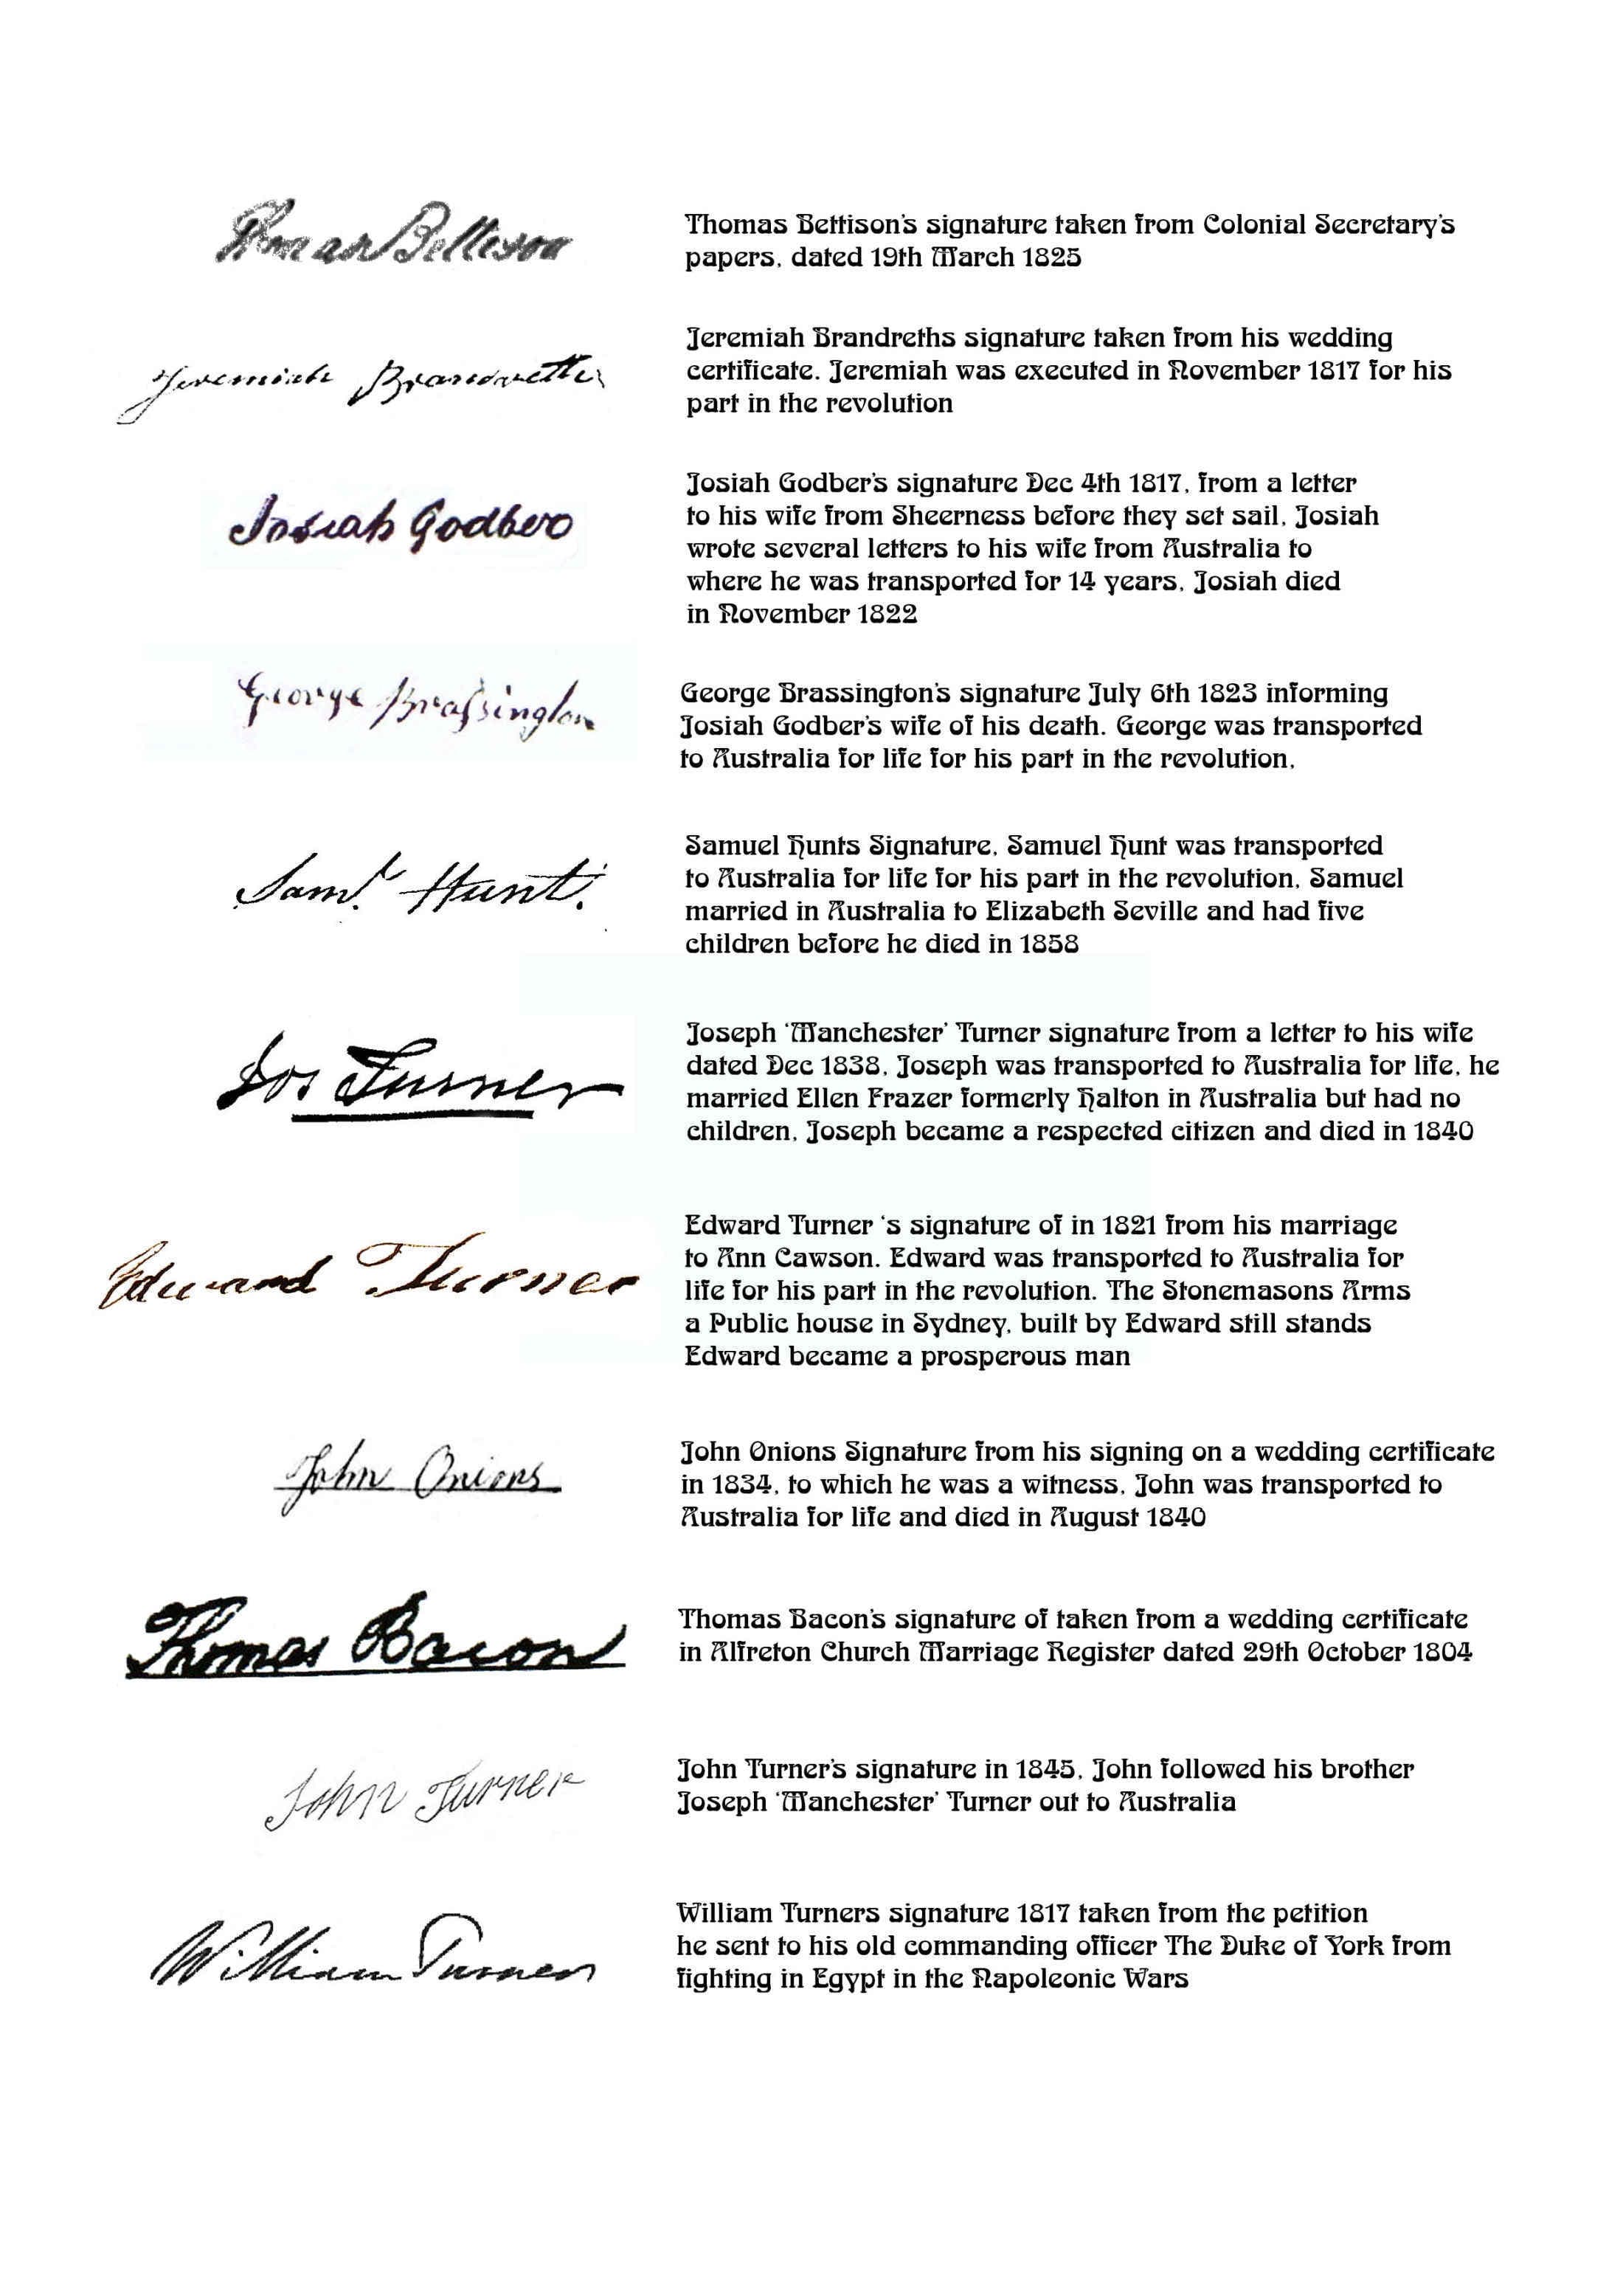 Thomas Bettison
Thomas Bettison's signature taken from Colonial Secretary's
papers, dated 19th March 1825
Jeremiah Brandreth
Jeremiah Brandreths signature taken from his wedding
certificate. Jeremiah was executed in November 1817 for his
part in the revolution
Josiah Godber
Josiah Godber's signature Dec 4th 1817, from a letter
to his wife from Sheerness before they set sail, Josiah
wrote several letters to his wife from Australia to
where he was transported for 14 years, Josiah died
in November 1822
George Braſsington
George Brassington's signature July 6th 1823 informing
Josiah Godber's wife of his death. George was transported
to Australia for life for his part in the revolution,
Saml. Hunt.
Samuel Hunts Signature, Samuel Hunt was transported
to Australia for life for his part in the revolution, Samuel
married in Australia to Elizabeth Seville and had five
children before he died in 1858
Jos Turner
Joseph 'Manchester' Turner signature from a letter to his wife
dated Dec 1838, Joseph was transported to Australia for life, he
married Ellen Frazer formerly Halton in Australia but had no
children, Joseph became a respected citizen and died in 1840
Edward Turner
Edward Turner 's signature of in 1821 from his marriage
to Ann Cawson. Edward was transported to Australia for
life for his part in the revolution. The Stonemasons Arms
a Public house in Sydney, built by Edward still stands
Edward became a prosperous man
John Onions
John Onions Signature from his signing on a wedding certificate
in 1834, to which he was a witness, John was transported to
Australia for life and died in August 1840
Thomas Bacon
Thomas Bacon's signature of taken from a wedding certificate
in Alfreton Church Marriage Register dated 29th October 1804
John Turner
John Turner's signature in 1845, John followed his brother
Joseph 'Manchester' Turner out to Australia
William Turner
William Turners signature 1817 taken from the petition
he sent to his old commanding officer The Duke of York from
fighting in Egypt in the Napoleonic Wars